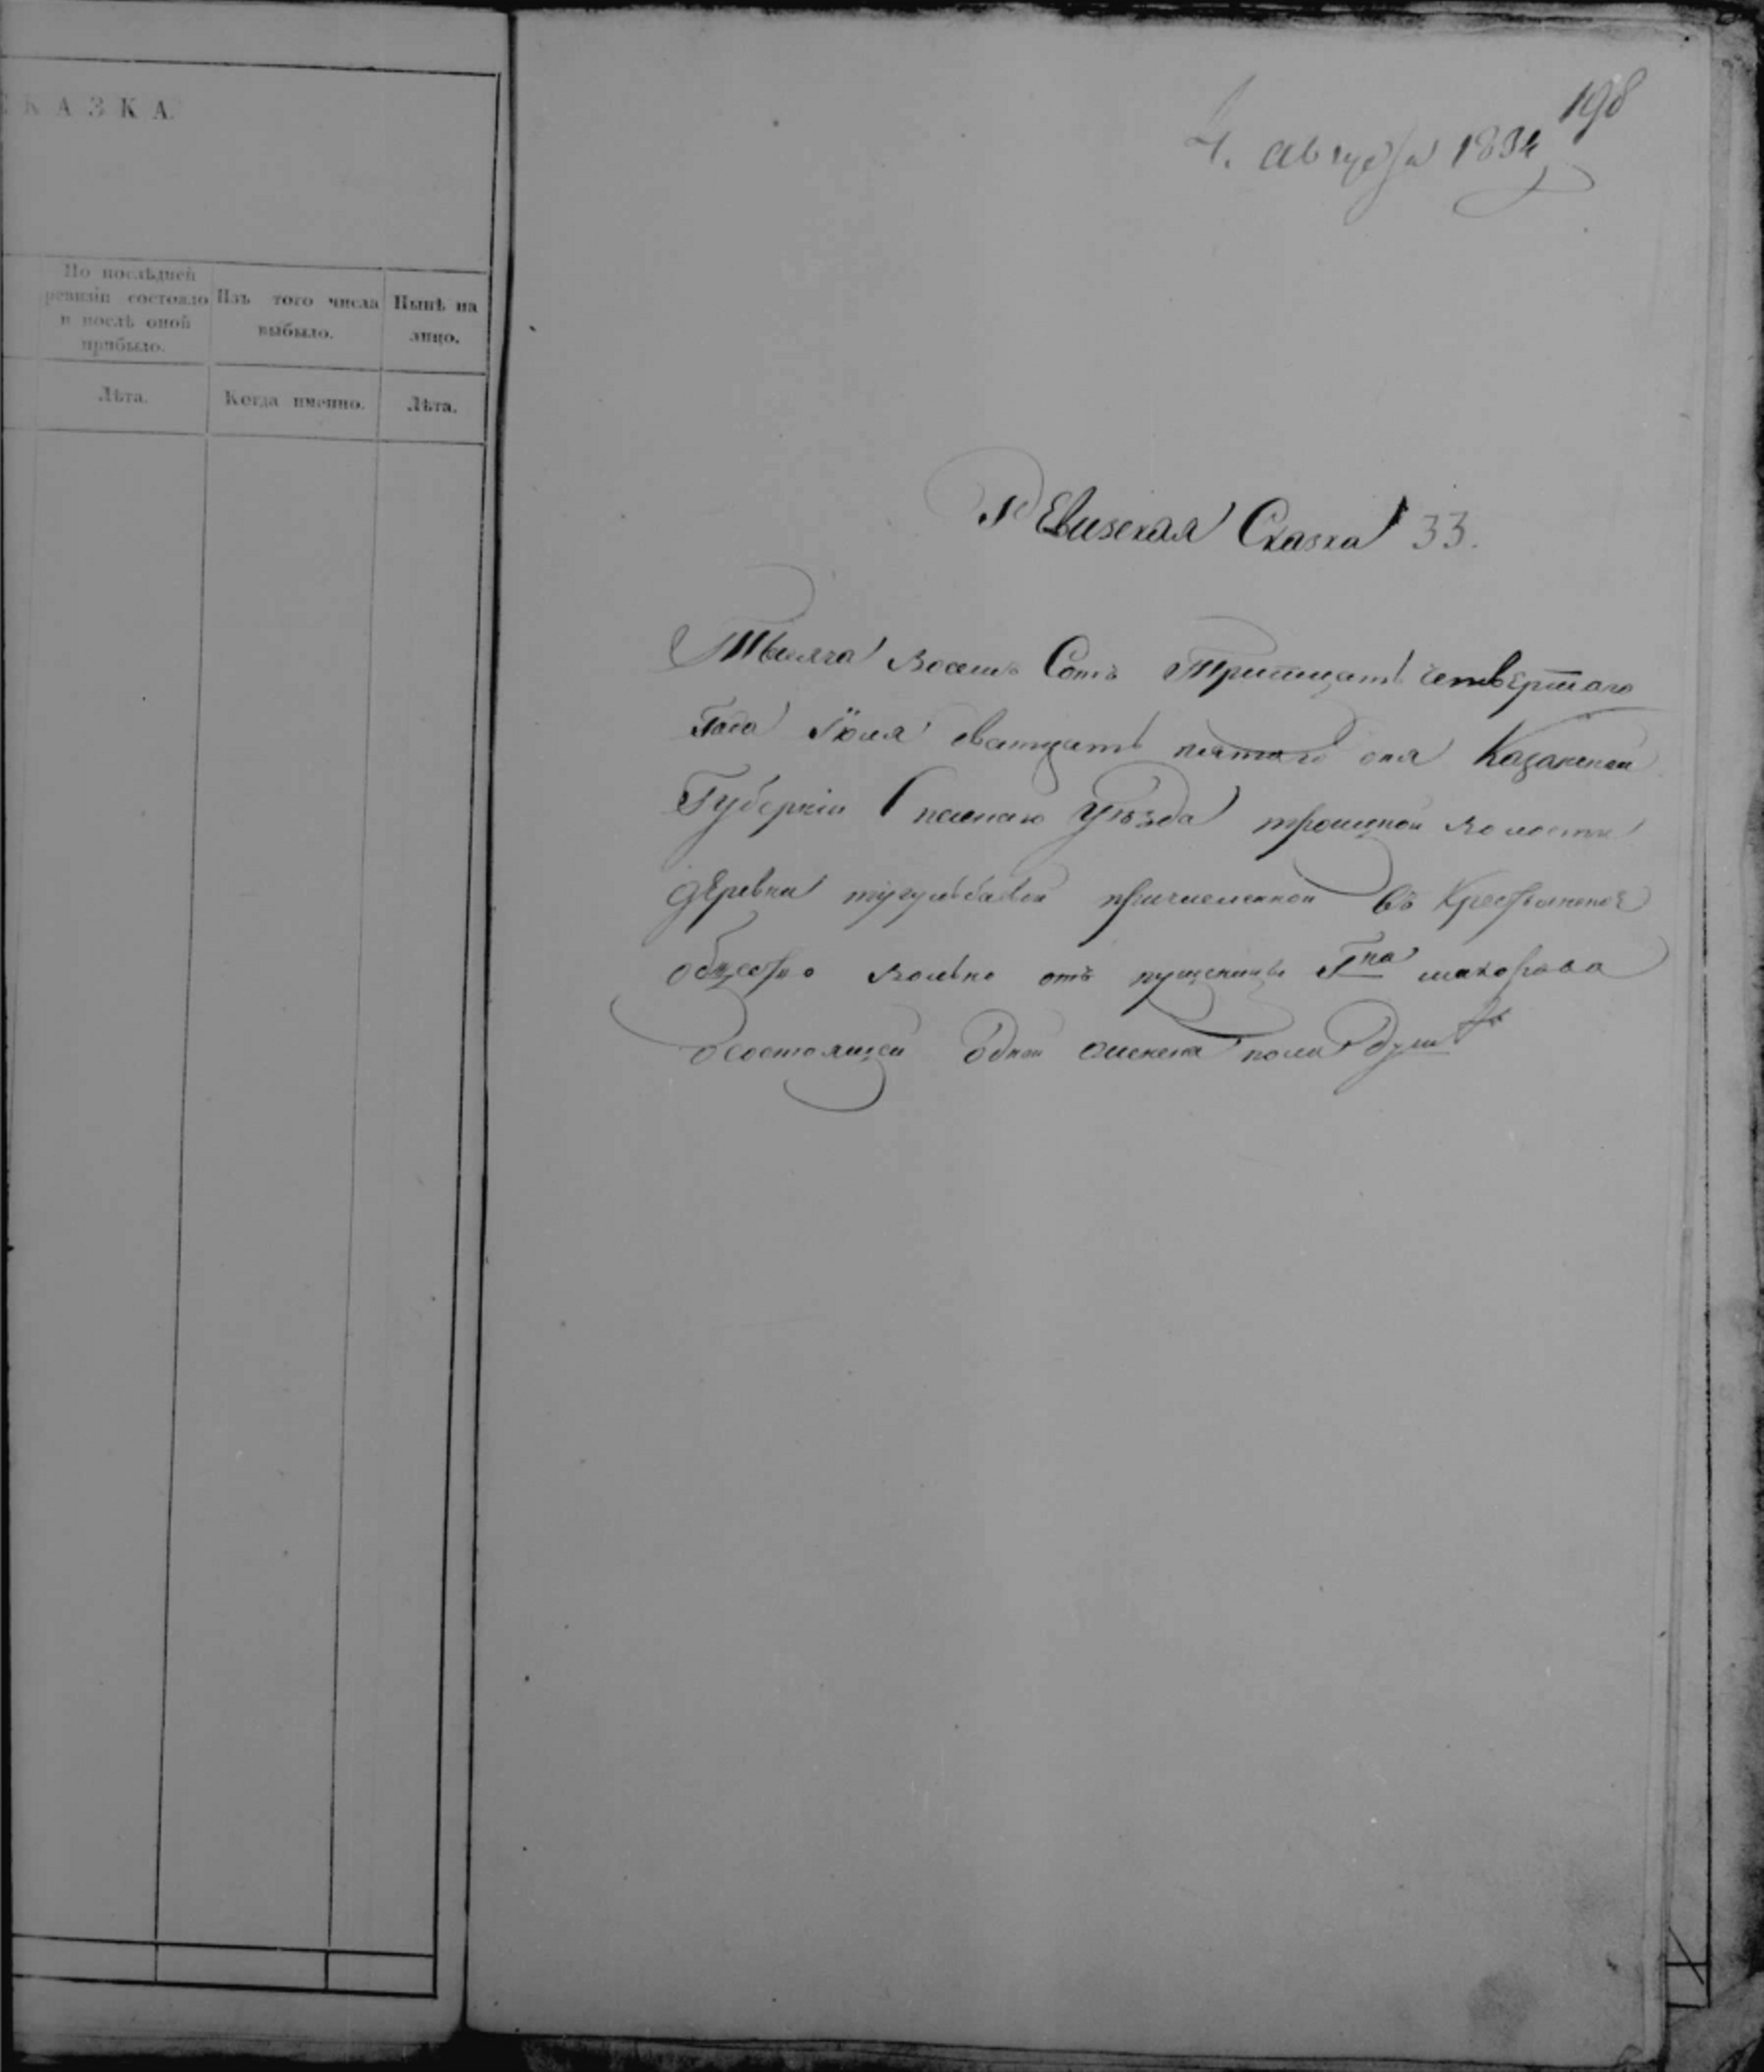 СКАЗКА.
По послѣдней
ревизіи состояло
и послѣ оной
прибыло.
Изъ того числа
выбыло.
Нынѣ на
лицо.
Лѣта.
Когда именно.
Лѣта.
198
4. августа 1834
Ревизская Сказка 33.
Тысяча восемь Сотъ Тритцать четвертаго
Года Іюля дватцать пятаго дня Казанской
Губерніи Спаскаго Уѣзда троицкой волости
деревни тугулбавой причисленной въ Крестьянское
общество вольно отъ пущеницы Гна
о состоящей Одной женска пола души